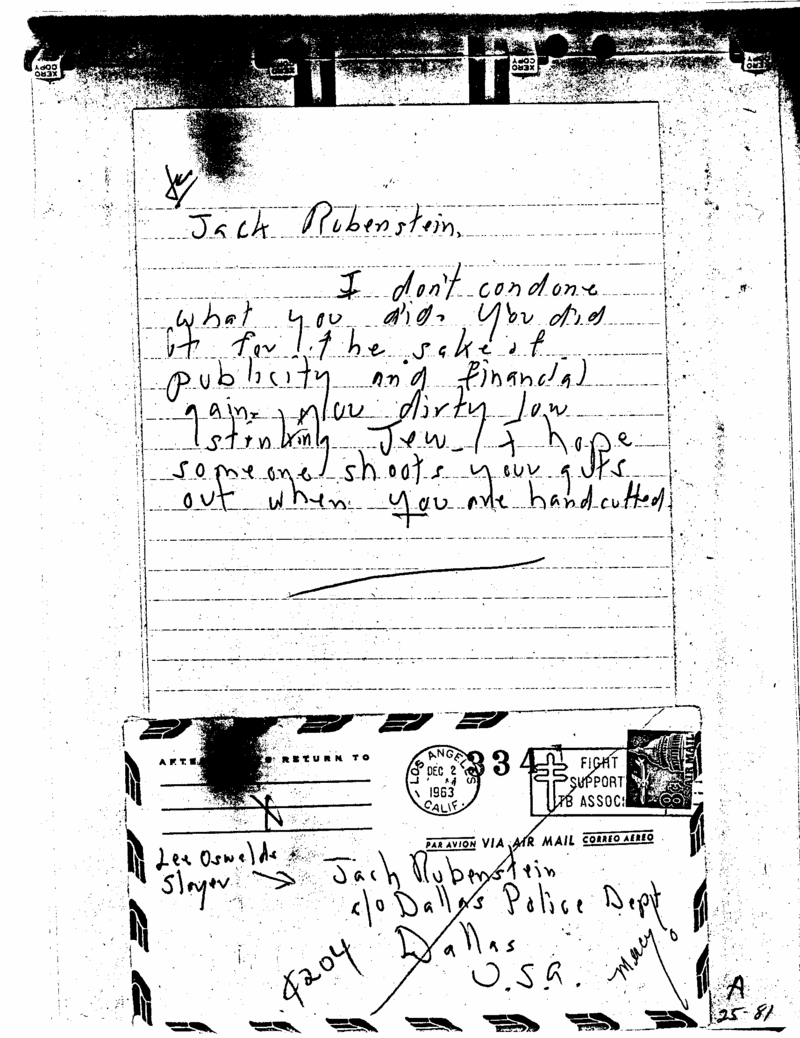 XERO COPY
XERO COPY
XERO COPY
XERO COPY
Jack Rubenstein,
I don't condone
what you did. You did
it for the sake of
publicity and financial
gain. you dirty low
stinking Jew. I hope
someone shoots your guts
out when you are handcuffed.
RETURN TO
LOS ANGELES
DEC 2
1963
CALIF.
334
FIGHT
SUPPORT
TB ASSOC
8c
AIR MAIL
PAR AVION VIA AIR MAIL CORREO AEREO
Lee Oswalds
Slayer
Jack Rubenstein
c/o Dallas Police Dept
Dallas
U.S.A.
204
A
25-81